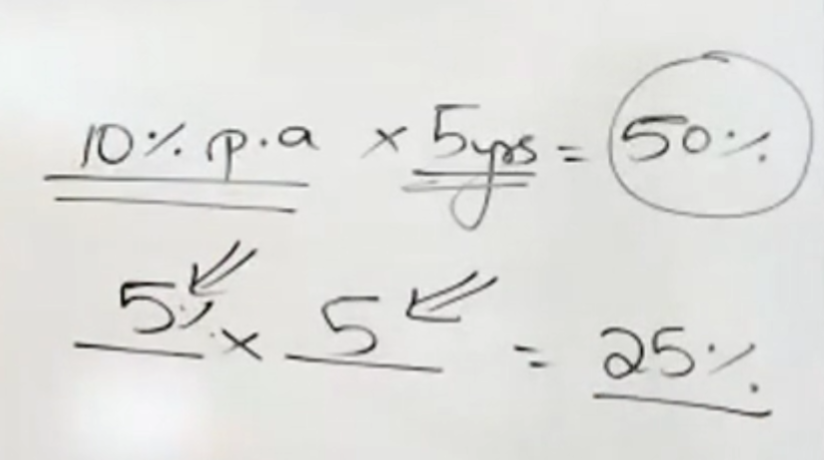 10% p.a × 5yrs = 50%
5% × 5 = 25%